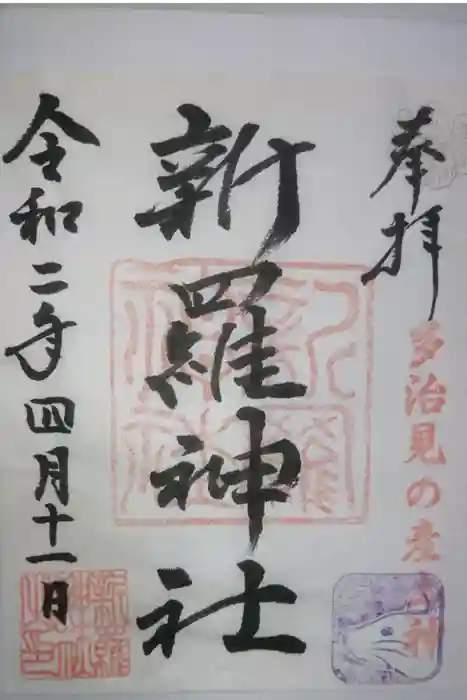 奉拝
多治見の産土神
新羅神社
令和二年四月十一日